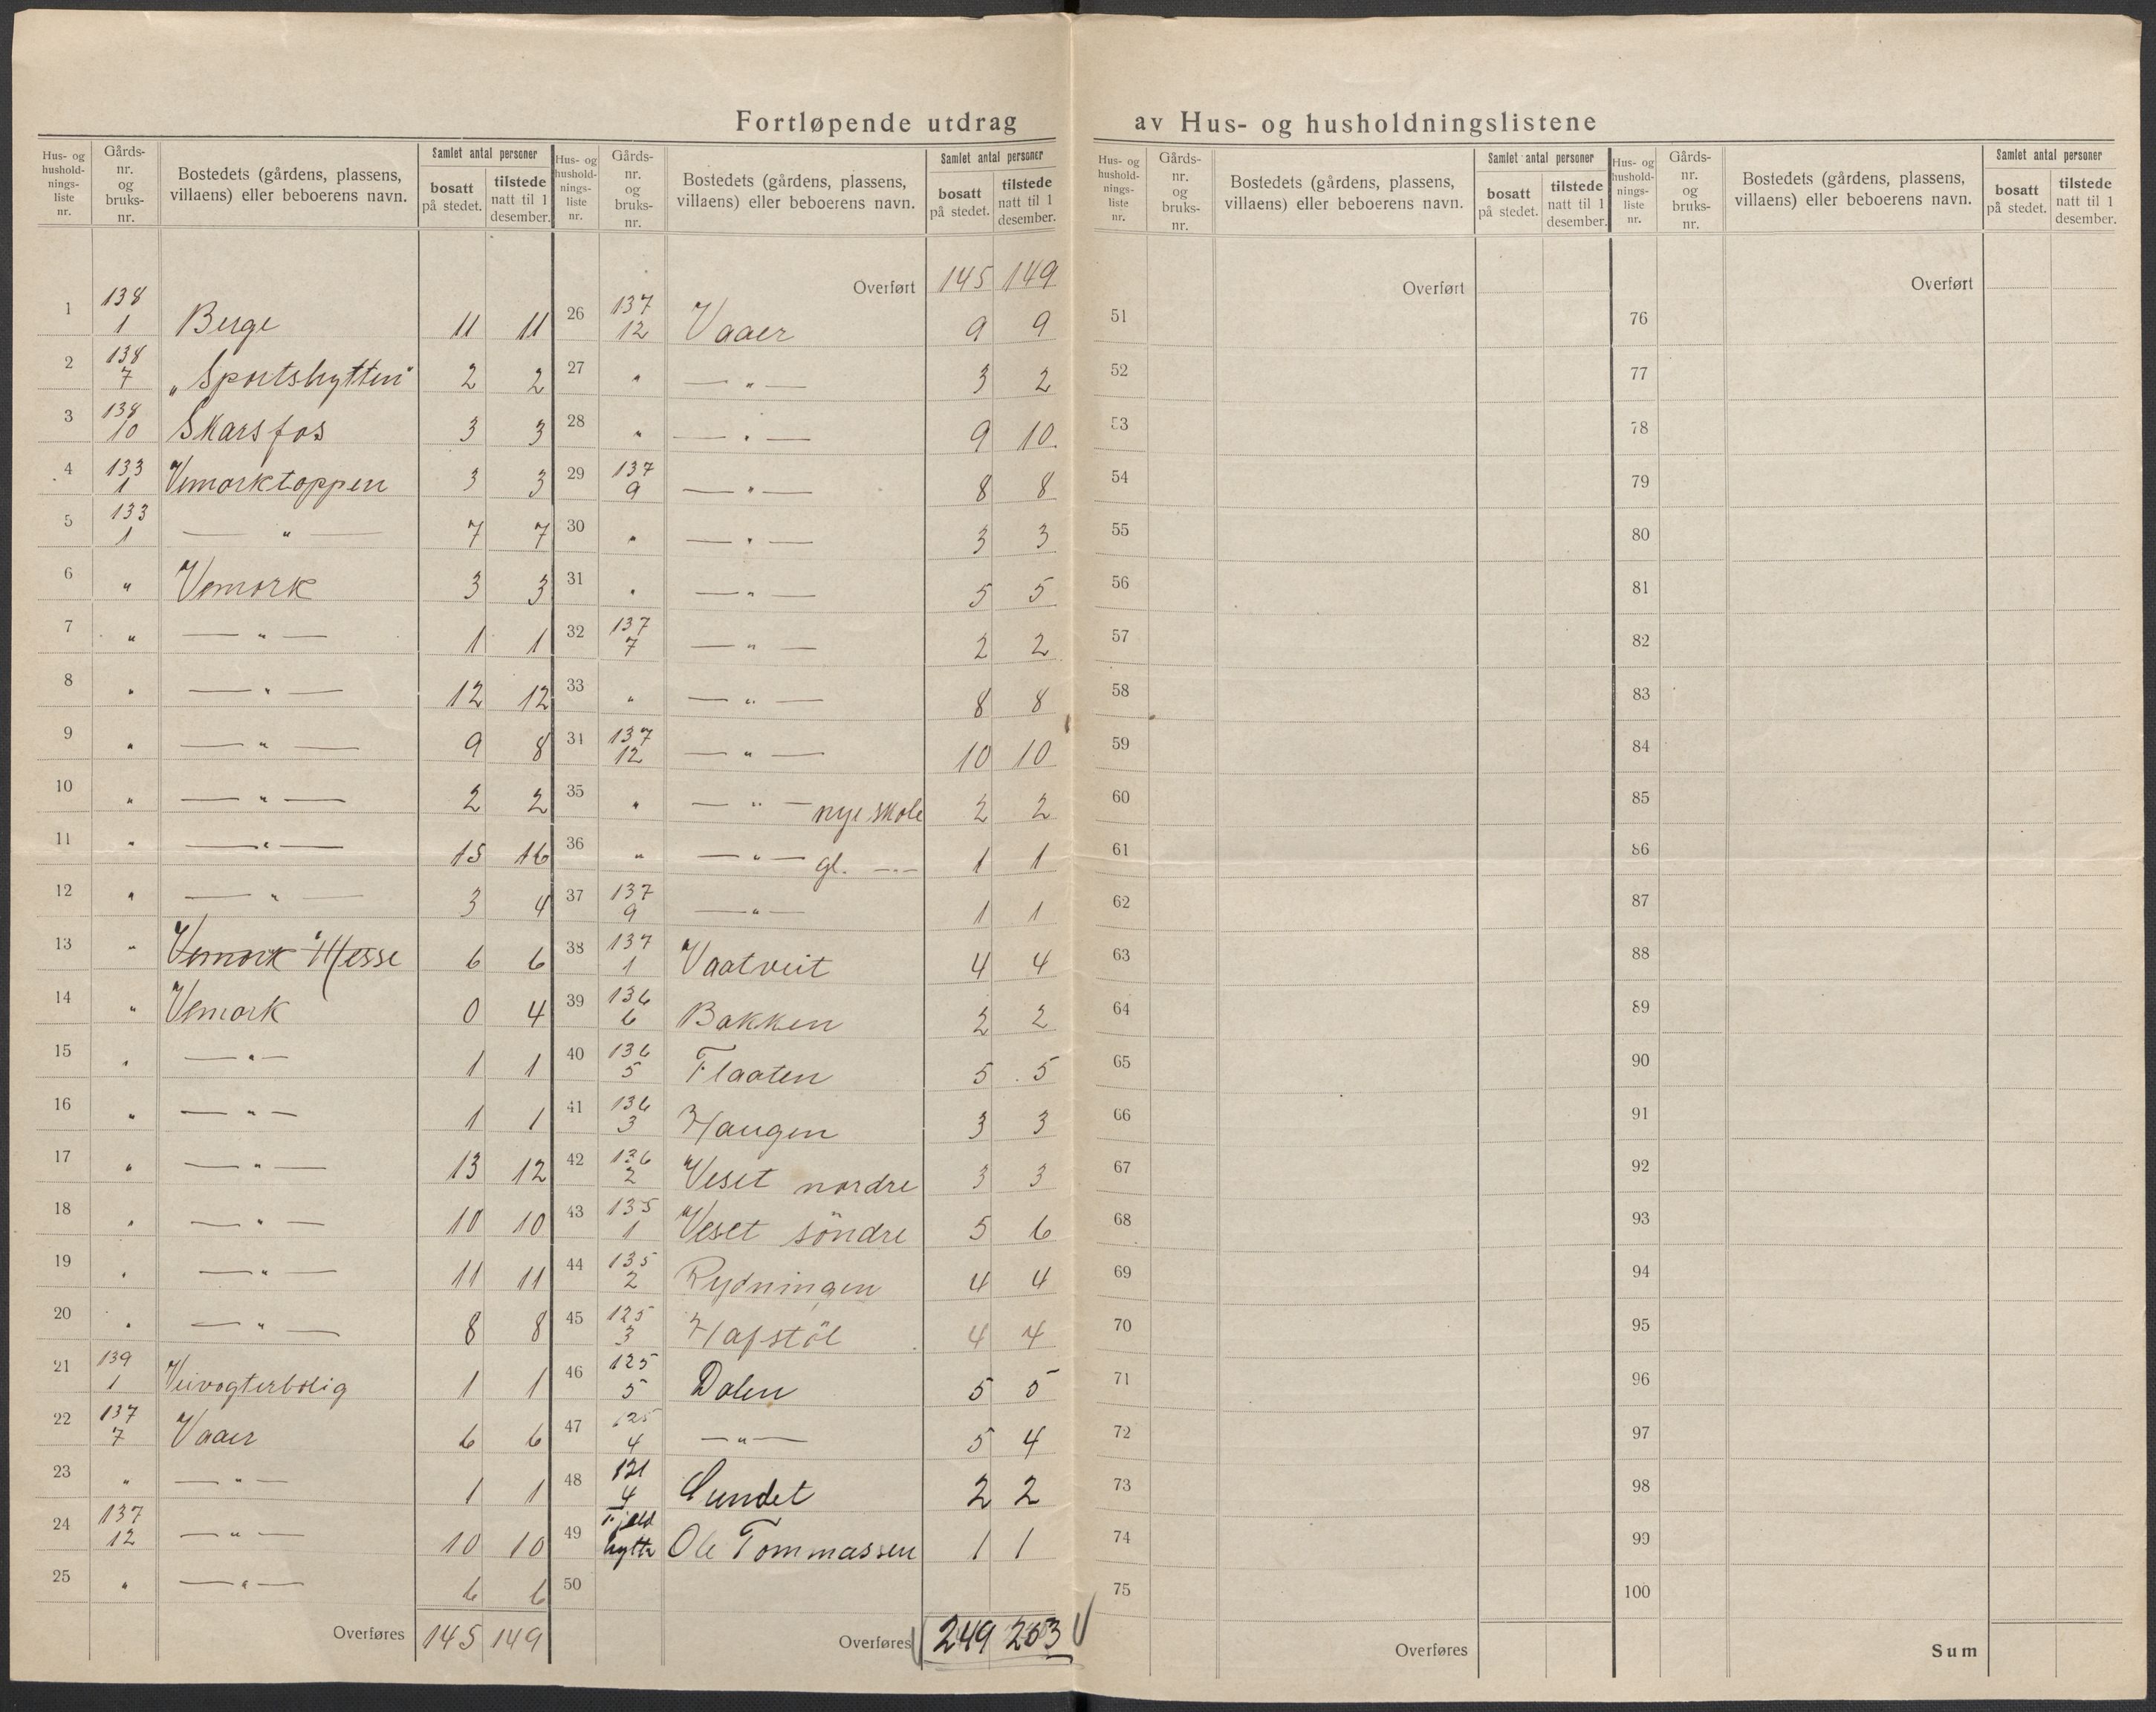 Fortløpende utdrag av Hus- og husholdningslistene
Hus- og hushold-nings-liste nr. | Gårds-nr. og bruks-nr. | Bostedets (gårdens, plassens, villaens) eller beboerens navn. | Samlet antal personer | bosatt på stedet. | tilstede natt til 1 desember.
1 138/1 Berge 11 11
2 138/7 „Sportshytten" 2 2
3 138/10 Skarsfos 3 3
4 133/1 Vemorktoppen 3 3
5 133/1 — " — 7 7
6 " Vemork 3 3
7 " — " — 1 1
8 " — " — 12 12
9 " — " — 9 8
10 " — " — 2 2
11 " — " — 15 16
12 " — " — 3 4
13 " Vemork Messe 6 6
14 " Vemork 0 4
15 " — " — 1 1
16 " — " — 1 1
17 " — " — 13 12
18 " — " — 10 10
19 " — " — 11 11
20 " — " — 8 8
21 139/1 Veivogterbolig 1 1
22 137/7 Vaaer 6 6
23 " — " — 1 1
24 137/12 — " — 10 10
25 " — " — 6 6
Overføres 145 149
Hus- og hushold-nings-liste nr. | Gårds-nr. og bruks-nr. | Bostedets (gårdens, plassens, villaens) eller beboerens navn. | Samlet antal personer | bosatt på stedet. | tilstede natt til 1 desember.
Overført 145 149
26 137/12 Vaaer 9 9
27 " — " — 3 2
28 " — " — 9 10
29 137/9 — " — 8 8
30 " — " — 3 3
31 " — " — 5 5
32 137/7 — " — 2 2
33 " — " — 8 8
34 137/12 — " — 10 10
35 " — " — nye skole 2 2
36 " — " — gl. — " — 1 1
37 137/9 — " — 1 1
38 137/1 Vaatveit 4 4
39 136/6 Bakken 2 2
40 136/5 Flaaten 5 5
41 136/3 Haugen 3 3
42 136/2 Veset nordre 3 3
43 135/1 Veset söndre 5 6
44 135/2 Rydningen 4 4
45 125/3 Hafstöl 4 4
46 125/5 Dalen 5 5
47 125/4 — " — 5 4
48 121/4 Sundet 2 2
49 Fjeld hytte Ole Tommassen 1 1
50
Overføres 249 253
Hus- og hushold-nings-liste nr. | Gårds-nr. og bruks-nr. | Bostedets (gårdens, plassens, villaens) eller beboerens navn. | Samlet antal personer | bosatt på stedet. | tilstede natt til 1 desember.
Overført
51
52
53
54
55
56
57
58
59
60
61
62
63
64
65
66
67
68
69
70
71
72
73
74
75
Overføres
Hus- og hushold-nings-liste nr. | Gårds-nr. og bruks-nr. | Bostedets (gårdens, plassens, villaens) eller beboerens navn. | Samlet antal personer | bosatt på stedet. | tilstede natt til 1 desember.
Overført
76
77
78
79
80
81
82
83
84
85
86
87
88
89
90
91
92
93
94
95
96
97
98
99
100
Sum